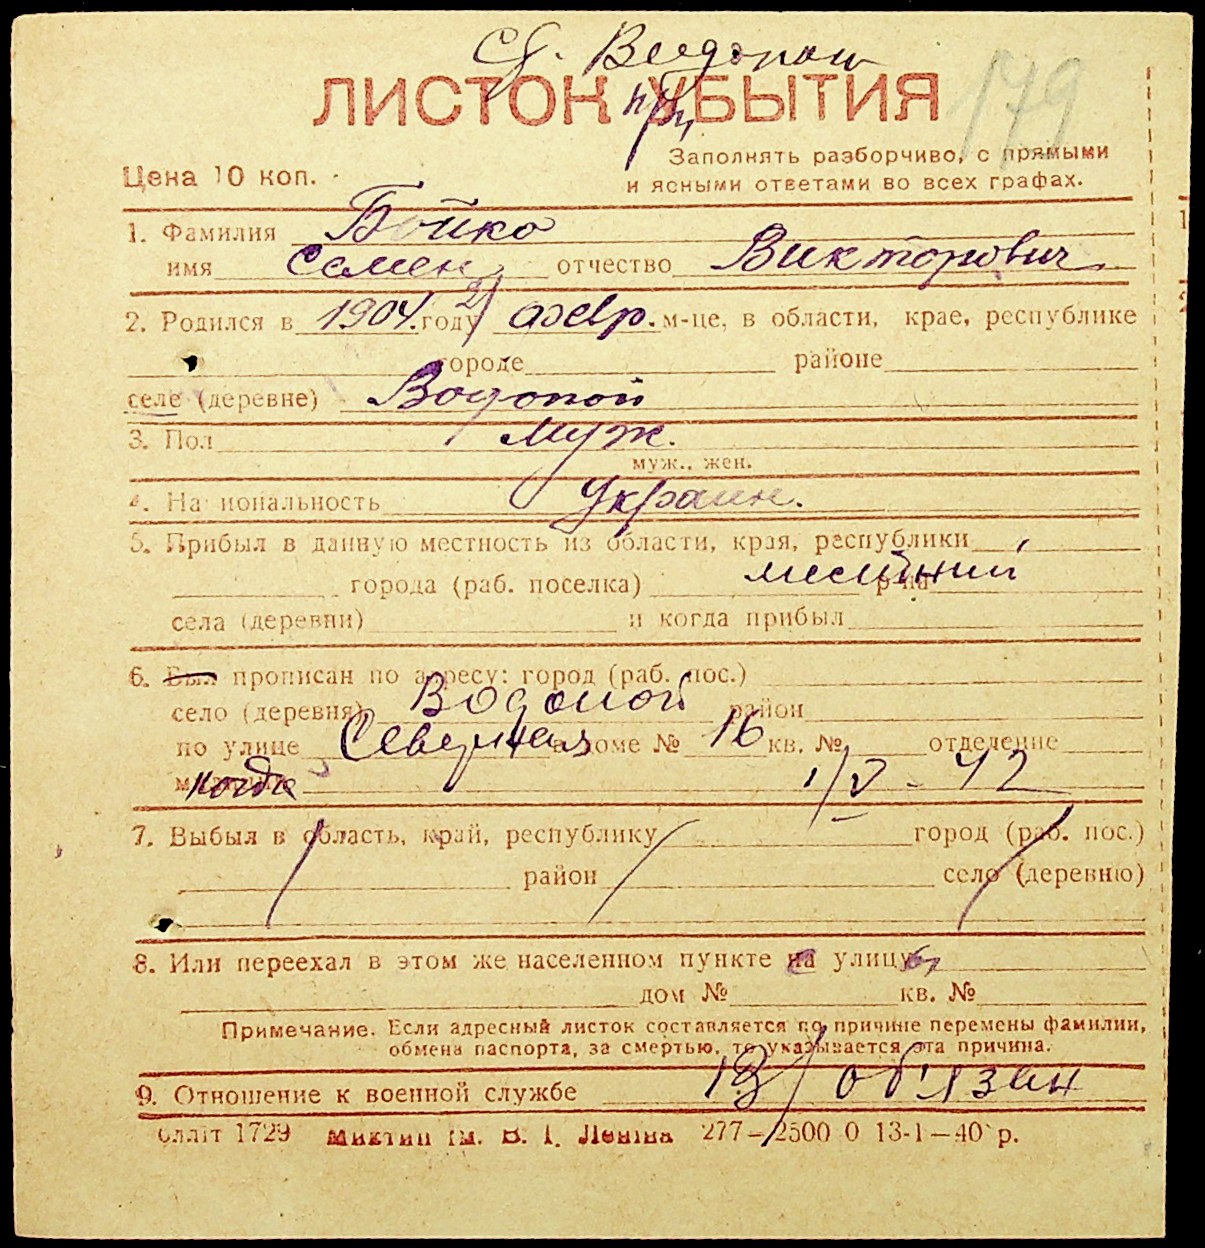 Ст. Водопой
ЛИСТОК УБЫТИЯ
179
Цена 10 коп.
Заполнять разборчиво, с прямыми
и ясными ответами во всех графах.
1. Фамилия Бойко
имя Семен отчество Викторович
2. Родился в 1904. году 2/ февр. м-це, в области, крае, республике
городе районе
селе (деревне) Водопой
3. Пол муж.
муж., жен.
4. Национальность Украин.
5. Прибыл в данную местность из области, края, республики
города (раб. поселка) местный р-на
села (деревни) и когда прибыл
6. Был прописан по адресу: город (раб. пос.)
село (деревня) Водопой район
по улице Северная в доме № 16 кв. № отделение
когда 1/V - 42
7. Выбыл в область, край, республику город (раб. пос.)
район село (деревню)
8. Или переехал в этом же населенном пункте на улицу
дом № кв. №
Примечание. Если адресный листок составляется по причине перемены фамилии,
обмена паспорта, за смертью, то указывается эта причина.
9. Отношение к военной службе В/обязан
блліт 1729 ім. В. І. Леніна 277—2500 0 13-1—40 р.